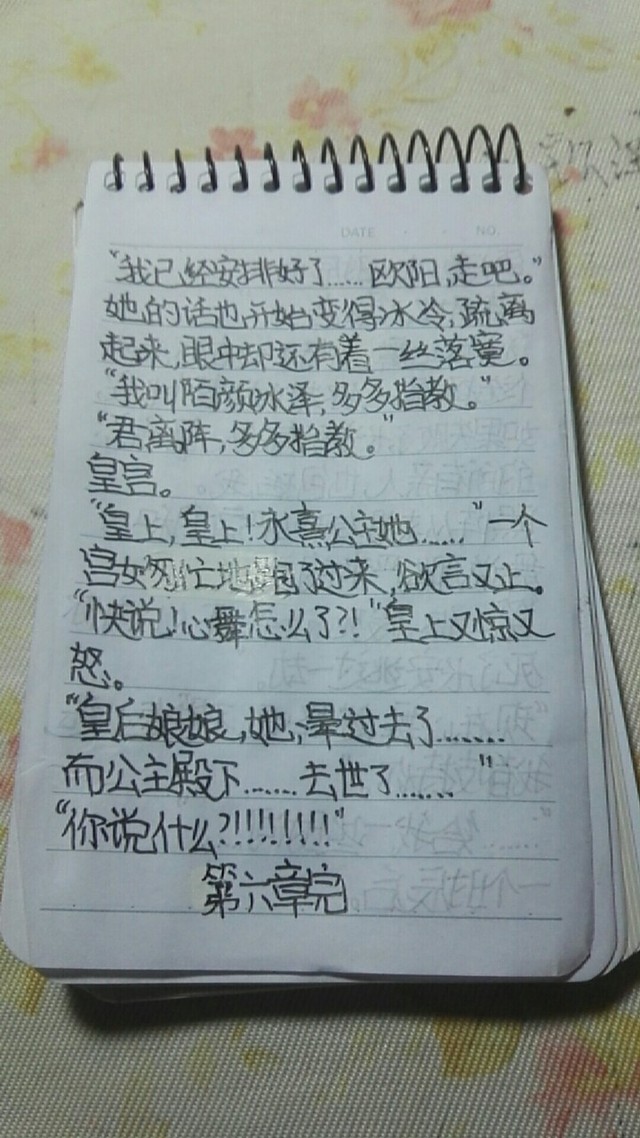 DATE . . NO.
“我已经安排好了……欧阳,走吧。”
她的话也开始变得冰冷,疏离
起来,眼中却还有着一丝落寞。
“我叫陌颜冰泽,多多指教。”
“君离阵,多多指教。”
皇宫。
“皇上,皇上!永熹公主她……”一个
宫女匆忙地跑了过来,欲言又止。
“快说!心舞怎么了?!”皇上又惊又
怒。
“皇后娘娘,她,晕过去了……
而公主殿下……去世了……”
“你说什么?!!!!!!!!”
第六章完